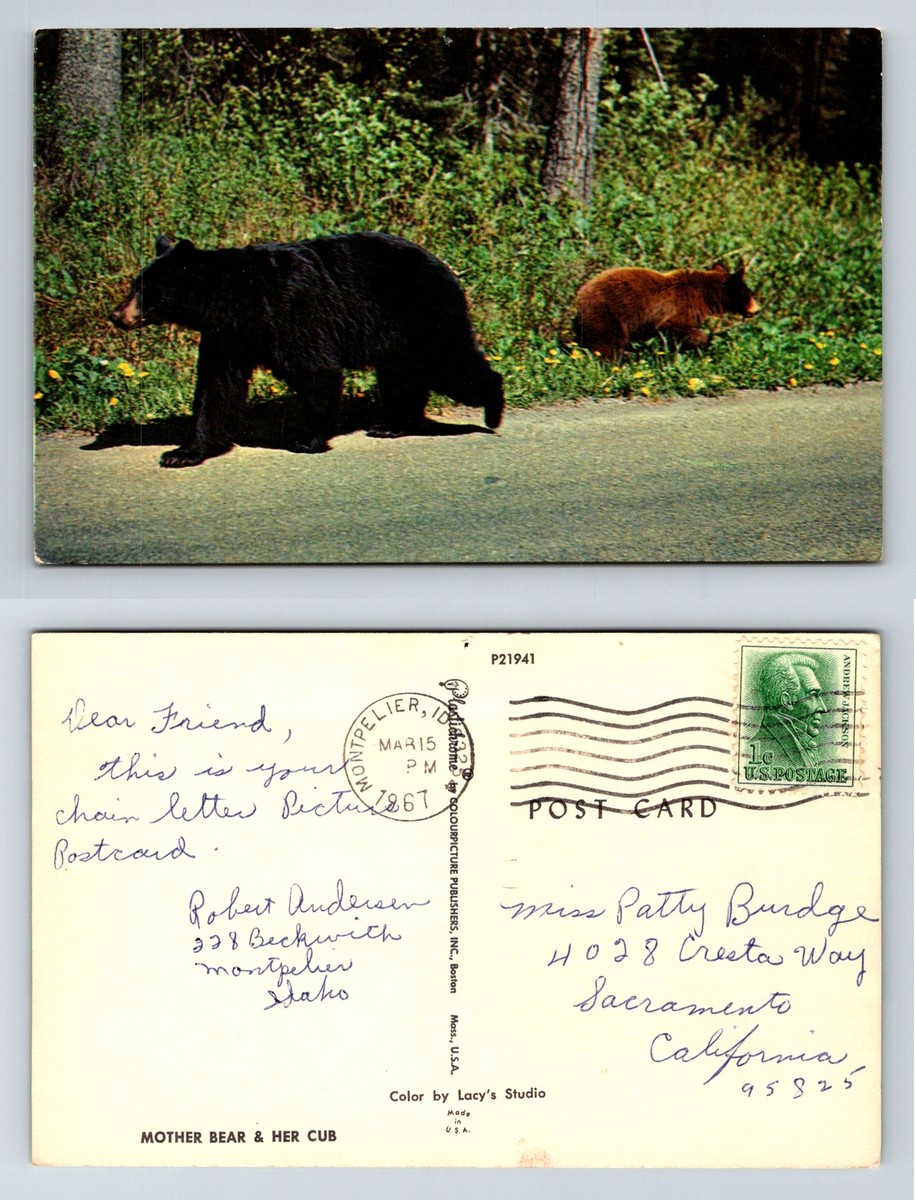 P21941
ANDREW JACKSON
1c
U.S. POSTAGE
MONTPELIER, ID
MAR 15
PM
1967
POST CARD
Dear Friend,
this is your
chain letter Picture
Postcard.
Robert Andersen
228 Beckwith
Montpelier
Idaho
Plastichrome ® by COLOURPICTURE PUBLISHERS, INC., Boston Mass., U.S.A.
Miss Patty Burdge
4028 Cresta Way
Sacramento
California
95825
Color by Lacy's Studio
Made
in
U.S.A.
MOTHER BEAR & HER CUB